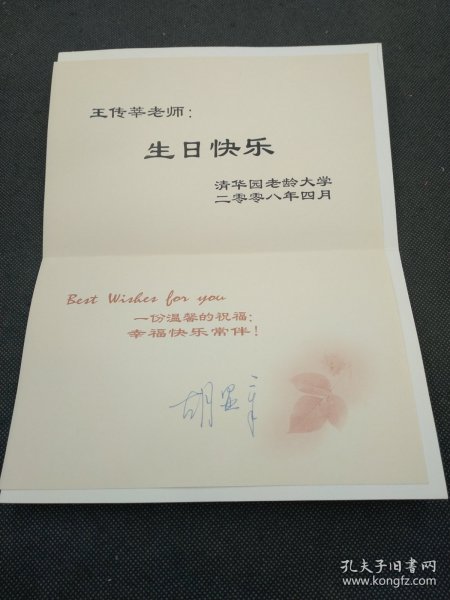 王传莘老师：
生日快乐
清华园老龄大学
二零零八年四月
Best Wishes for you
一份温馨的祝福：
幸福快乐常伴！
胡显章
孔夫子旧书网
www.kongfz.com